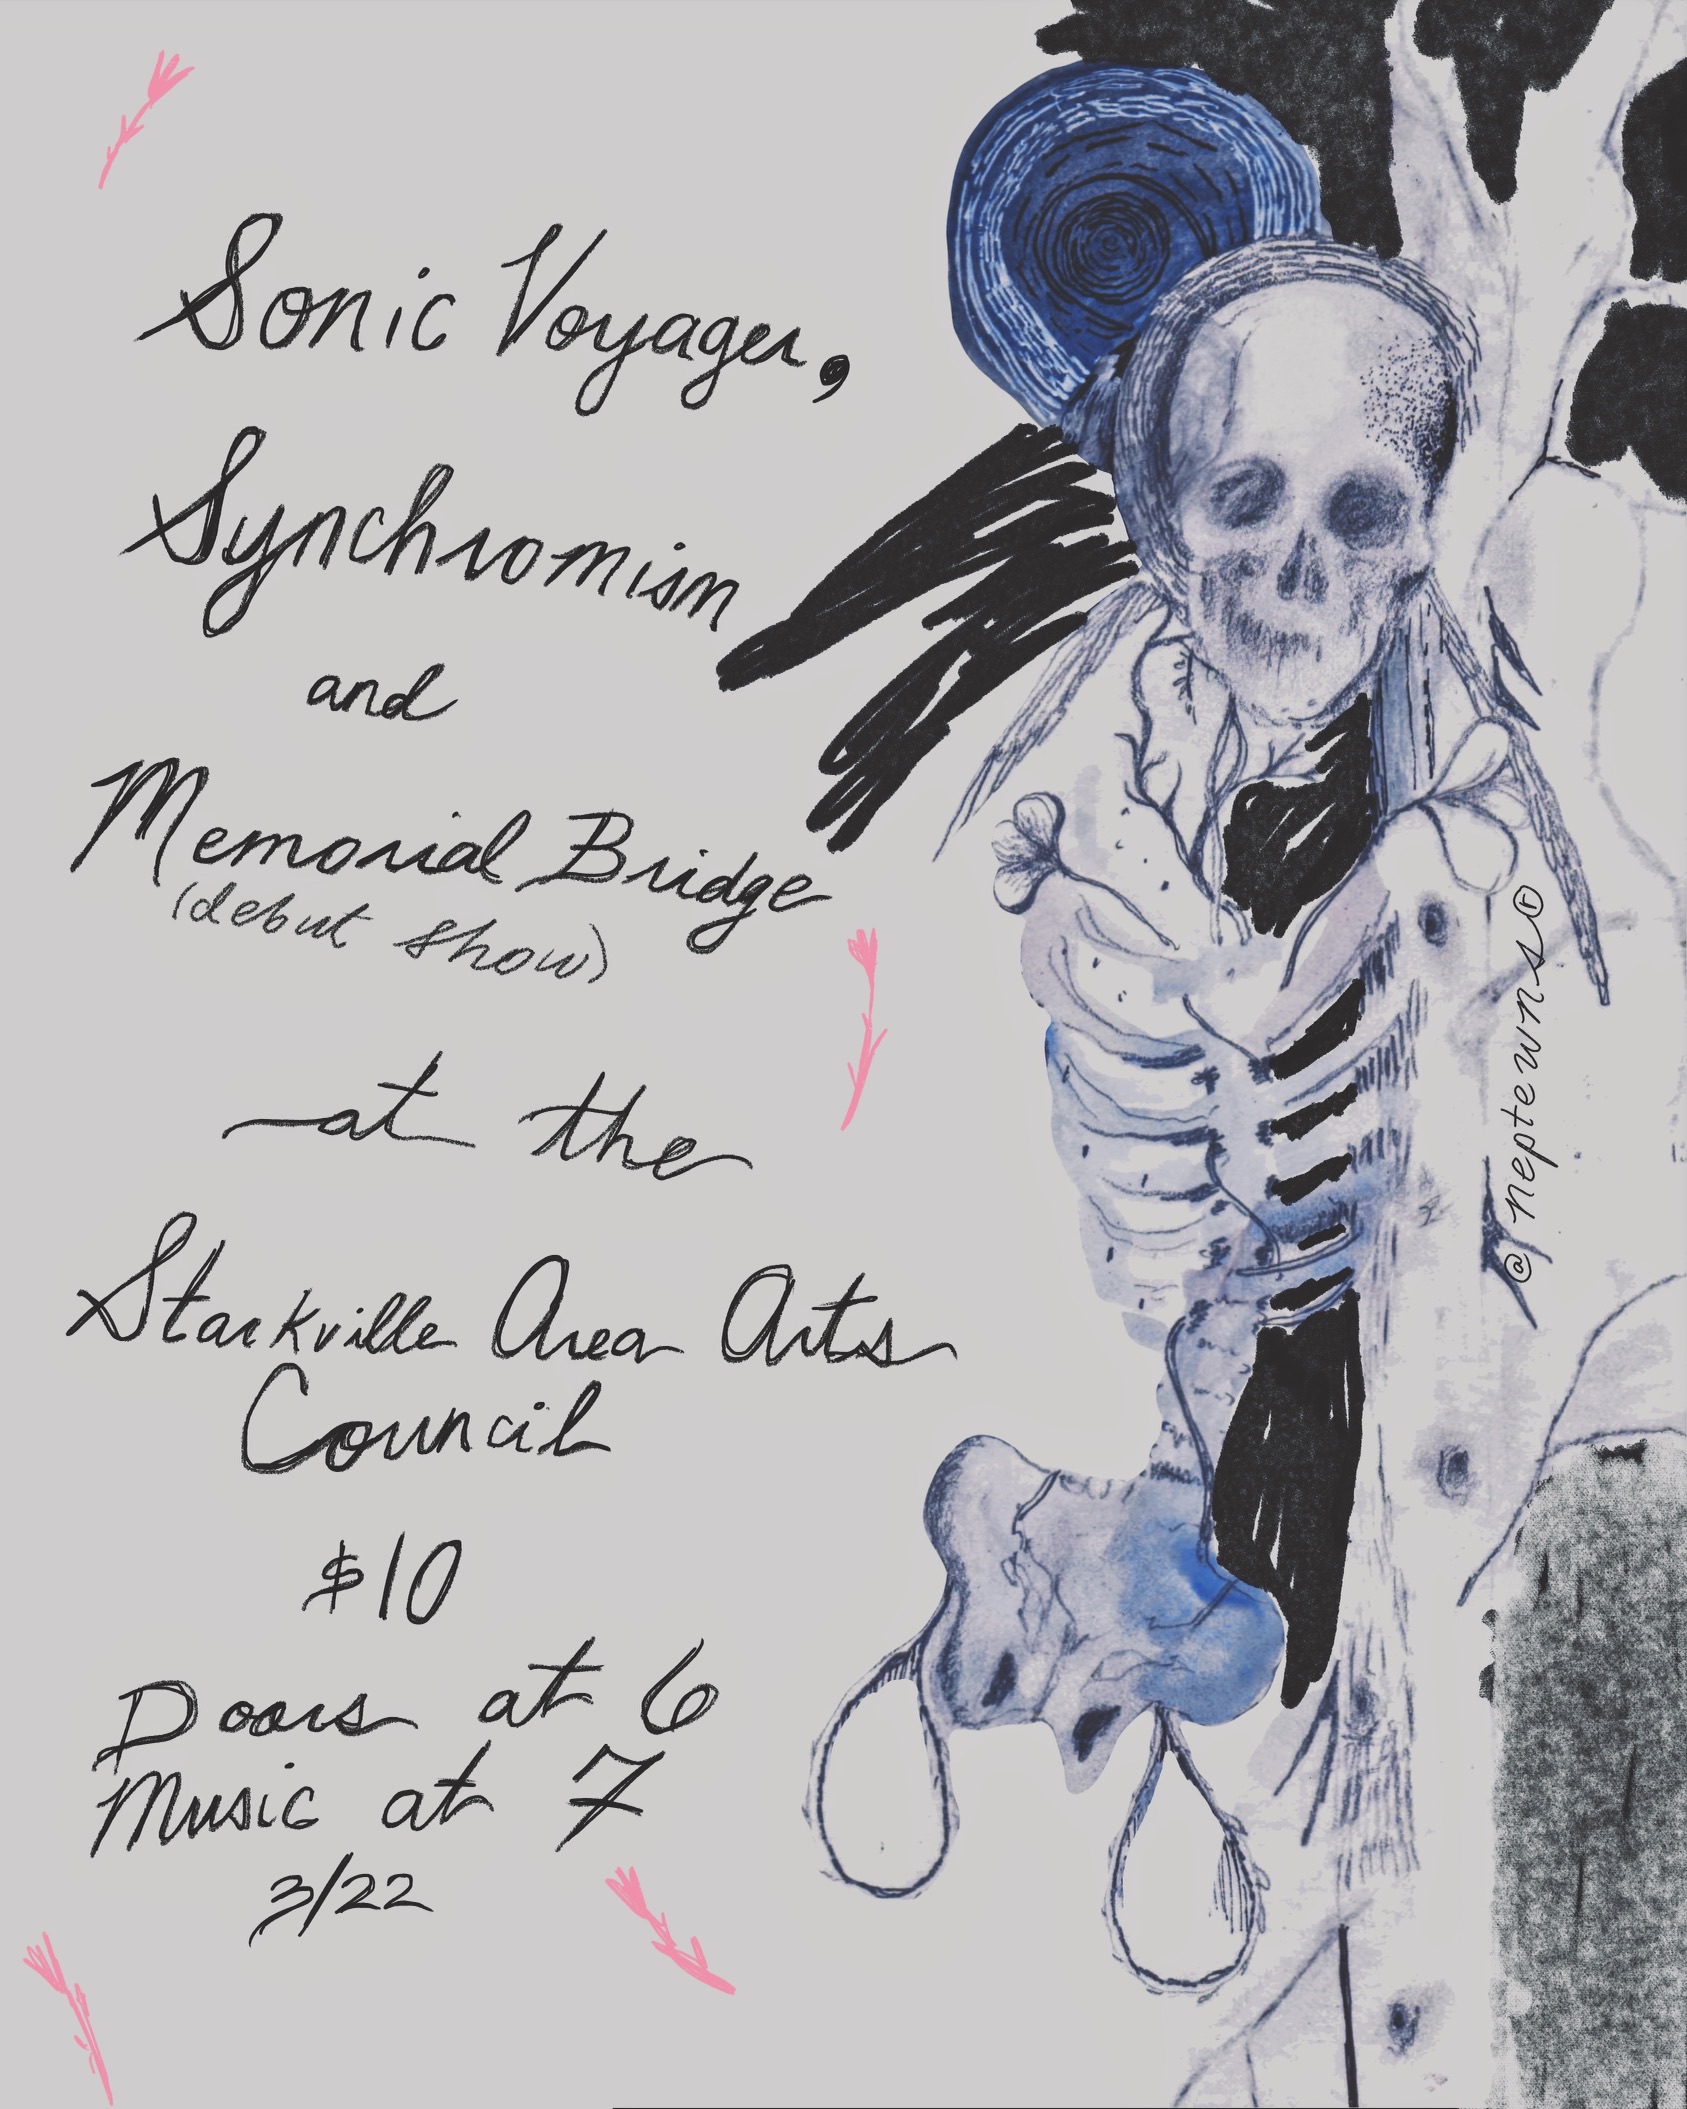 Sonic Voyager,
Synchromism
and
Memorial Bridge
(debut show)
at the
Starkville Area Arts
Council
$10
Doors at 6
Music at 7
3/22
@neptewns®